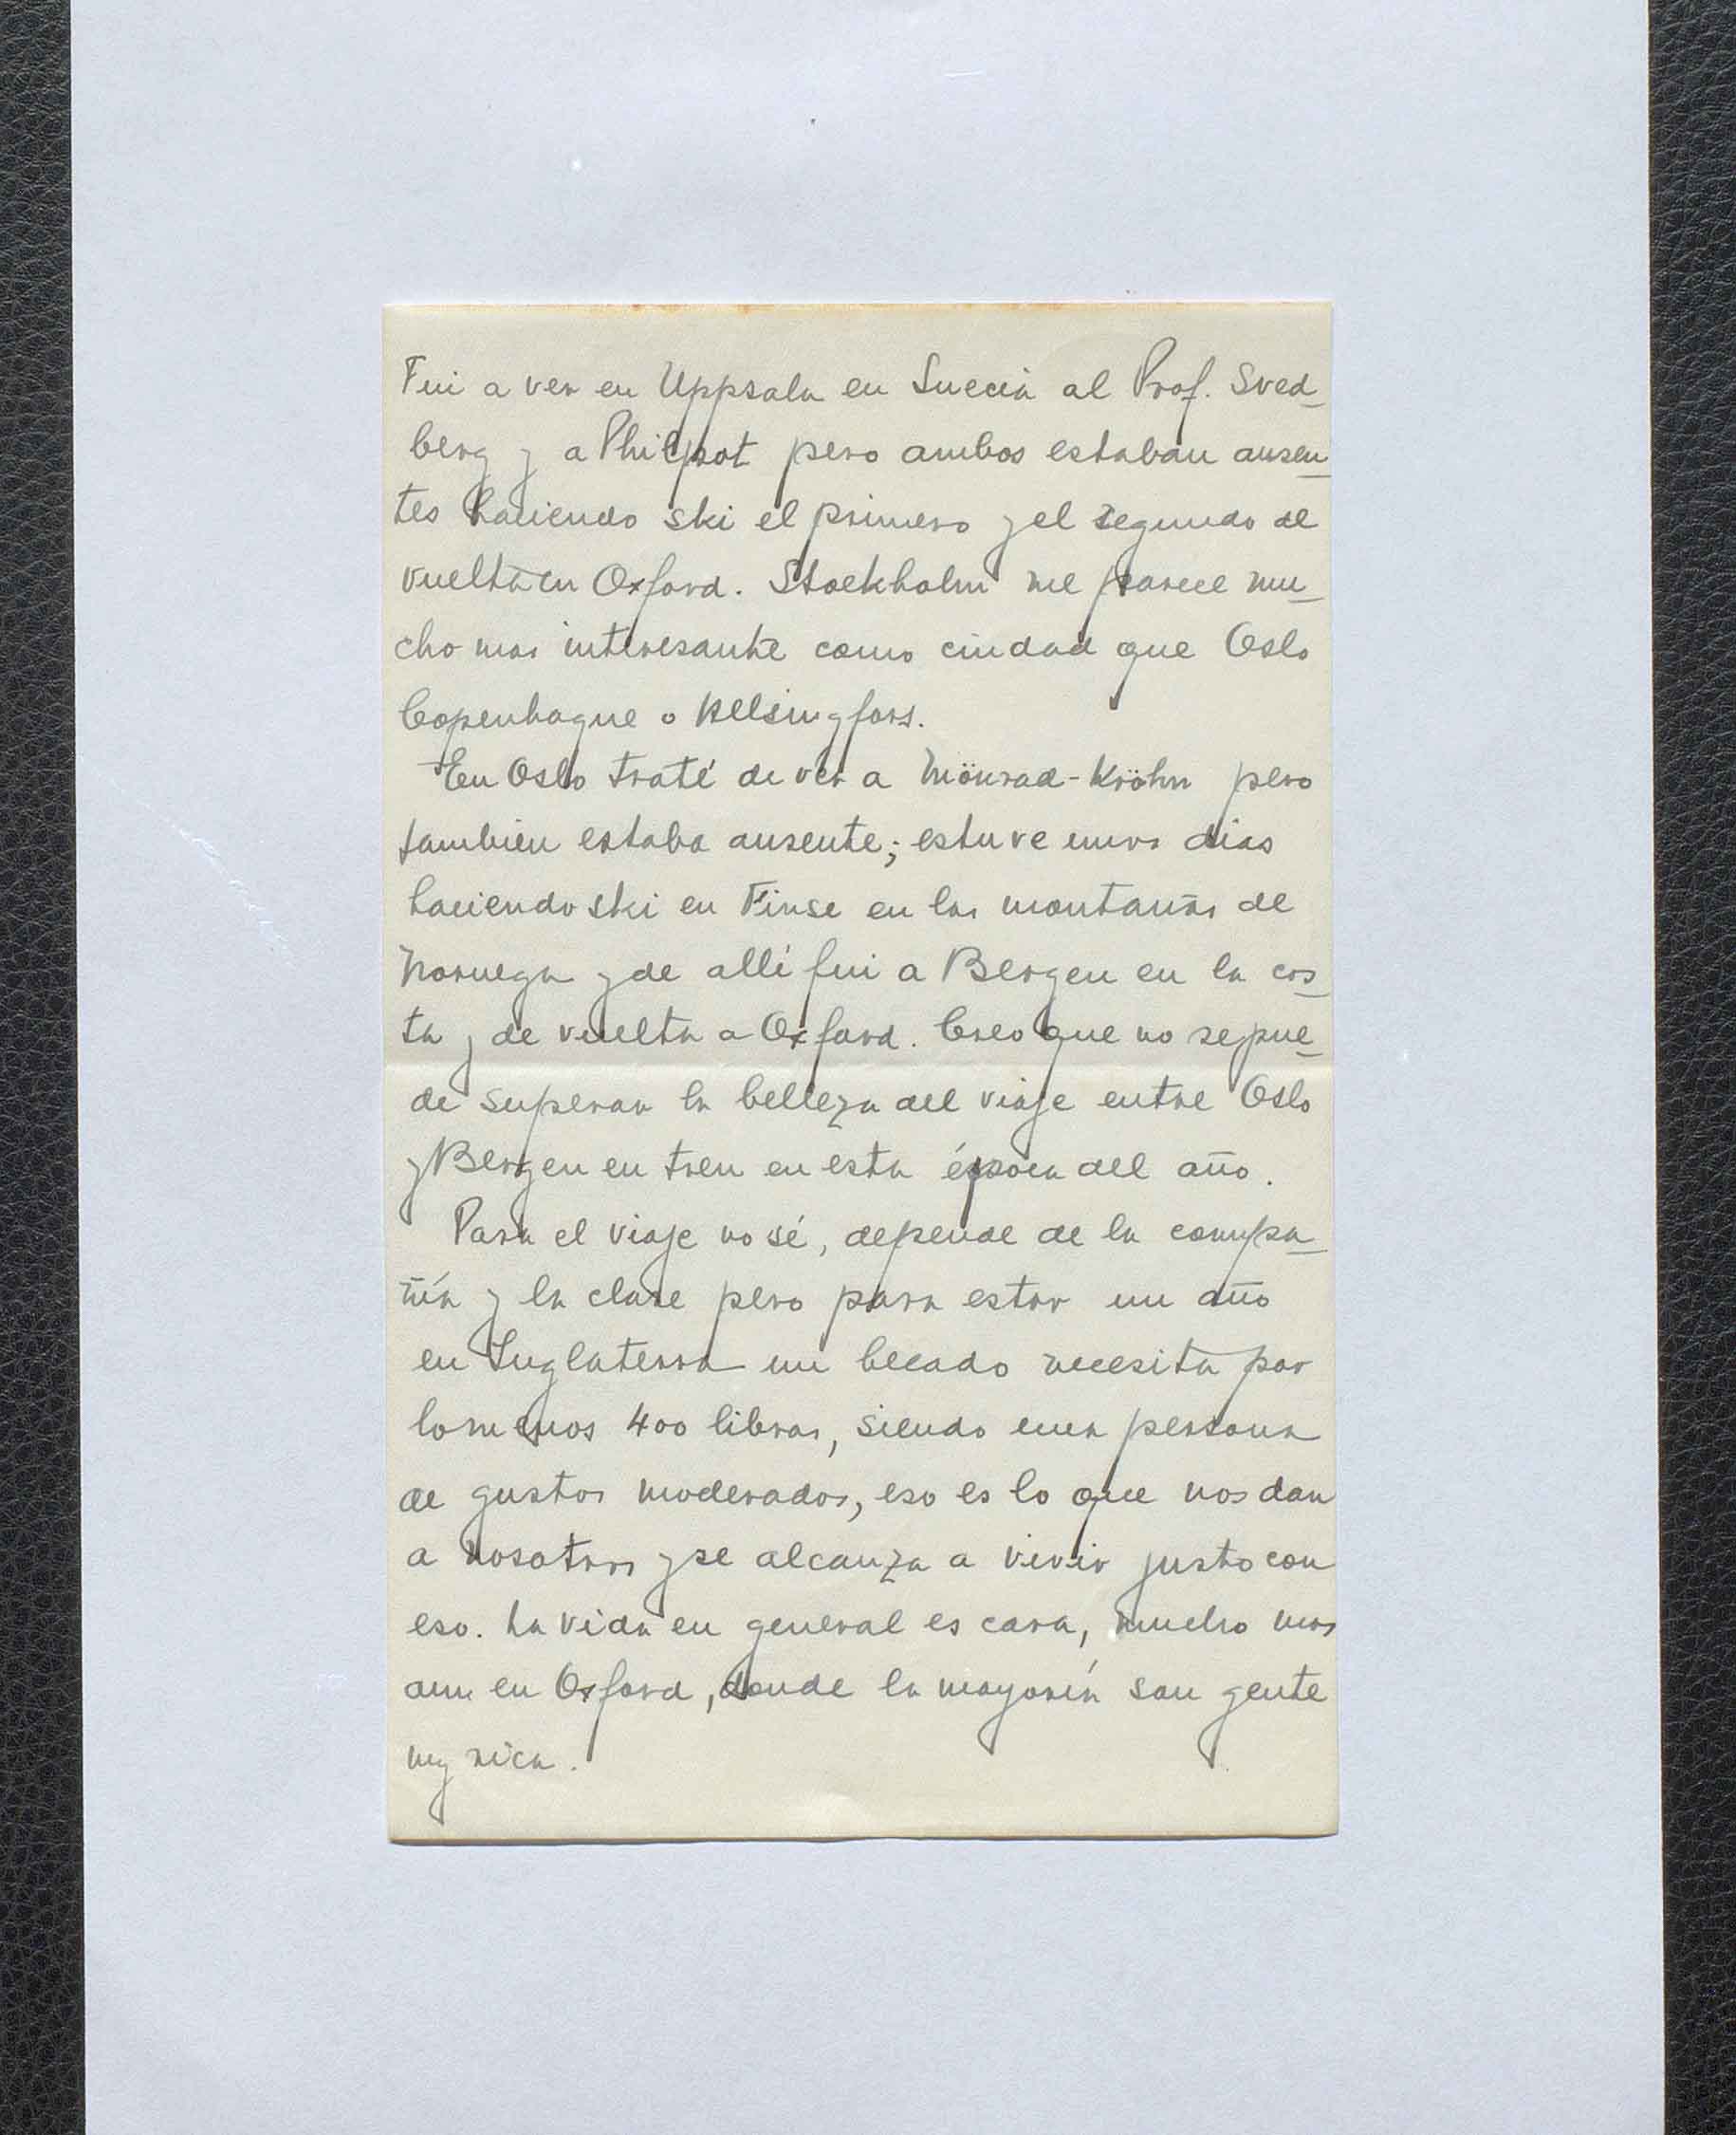 Fui a ver en Uppsala en Suecia al Prof. Sved_
berg y a Philpot pero ambos estaban ausen_
tes haciendo ski el primero y el segundo de
vuelta en Oxford. Stockholm me parece mu_
cho mas interesante como ciudad que Oslo
Copenhague o Helsingfors.
En Oslo traté de ver a Mönrad-Kröhn pero
tambien estaba ausente; estuve unos dias
haciendo ski en Finse en las montañas de
Noruega y de allí fui a Bergen en la cos_
ta y de vuelta a Oxford. Creo que no se pue_
de superar la belleza del viaje entre Oslo
y Bergen en tren en esta época del año.
Para el viaje no sé, depende de la compa_
ñía y la clase pero para estar un año
en Inglaterra un becado necesita por
lo menos 400 libras, siendo una persona
de gustos moderados, eso es lo que nos dan
a nosotros y se alcanza a vivir justo con
eso. La vida en general es cara, mucho mas
aun en Oxford, donde la mayoría son gente
muy rica.